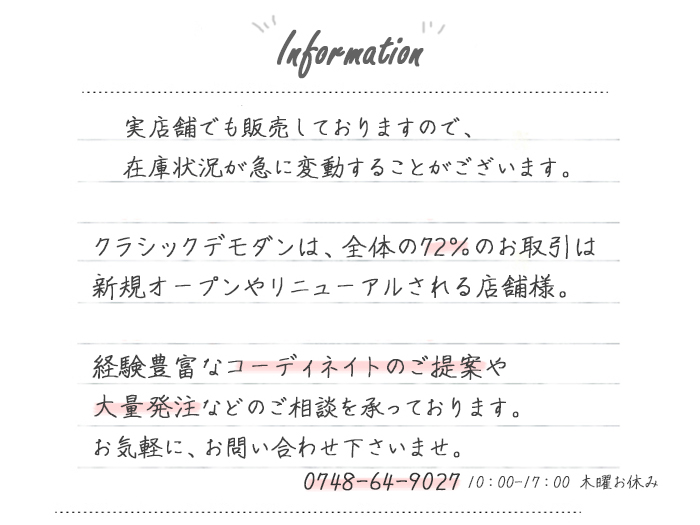 Information
実店舗でも販売しておりますので、
在庫状況が急に変動することがございます。
クラシックデモダンは、全体の72%のお取引は
新規オープンやリニューアルされる店舗様。
経験豊富なコーディネイトのご提案や
大量発注などのご相談を承っております。
お気軽に、お問い合わせ下さいませ。
0748-64-9027 10:00-17:00 木曜お休み